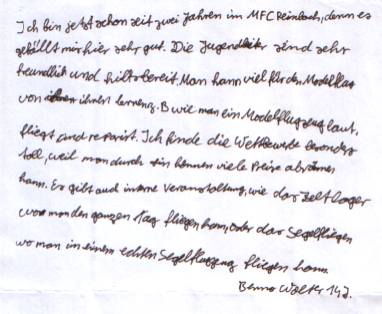 Ich bin jetzt schon seit zwei Jahren im MFC Reinbach, denn es
gefällt mir hier sehr gut. Die Jugendleiter sind sehr
freundlich und hilfsbereit. Man kann viel für den Modellflug
von ihnen lernen, z.B wie man ein Modellflugzeug baut,
fliegt und repariert. Ich finde die Wettbewerbe besonders
toll, weil man durch ein können viele Preise abräumen
kann. Es gibt auch interne Veranstaltung, wie das Zeltlager
wo man den ganzen Tag fliegen kann, oder das Segelfliegen
wo man in einem echten Segelflugzeug fliegen kann.
Benno Walter 14J.